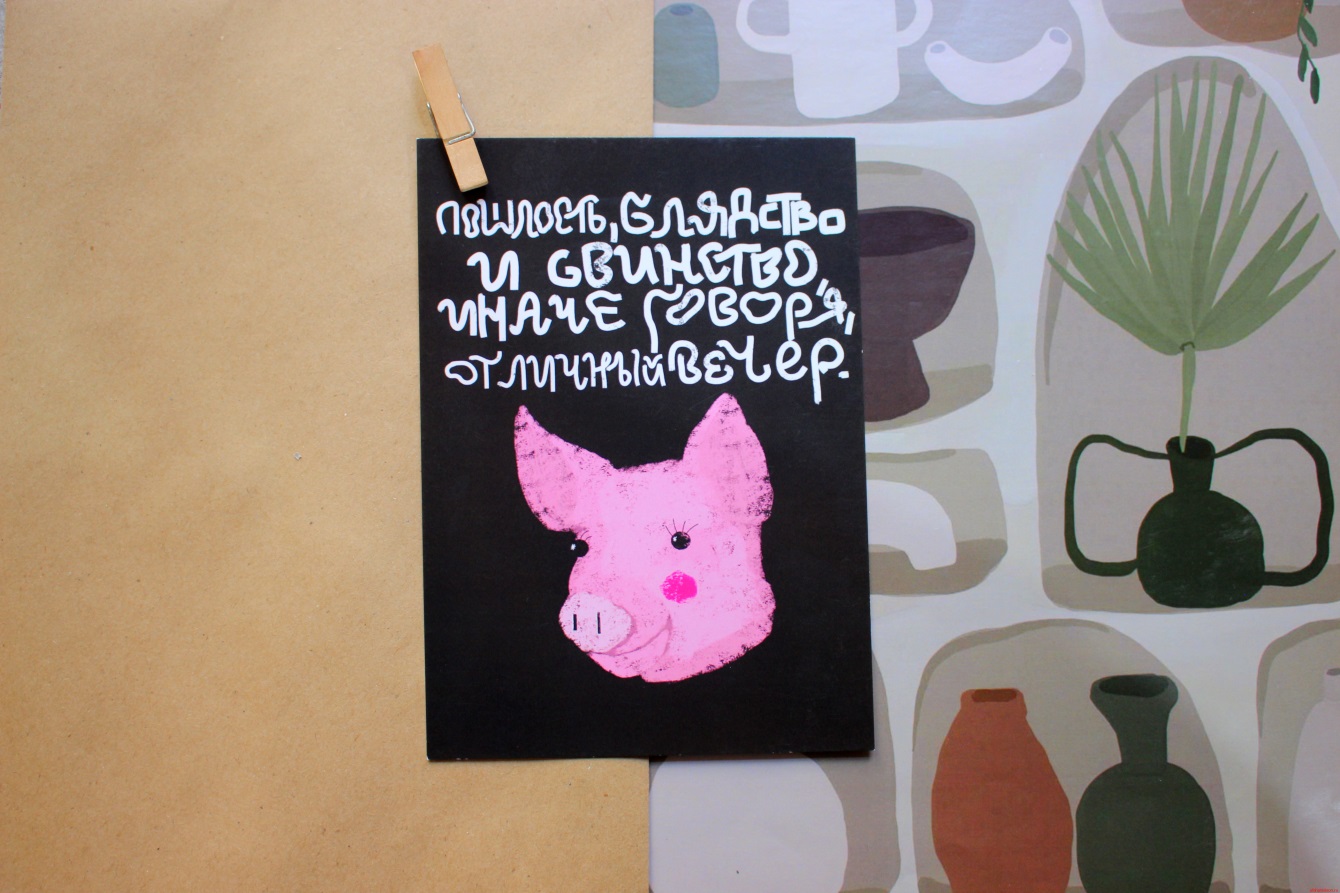 пошлость, блядство
и свинство,
иначе говоря,
отличный вечер.